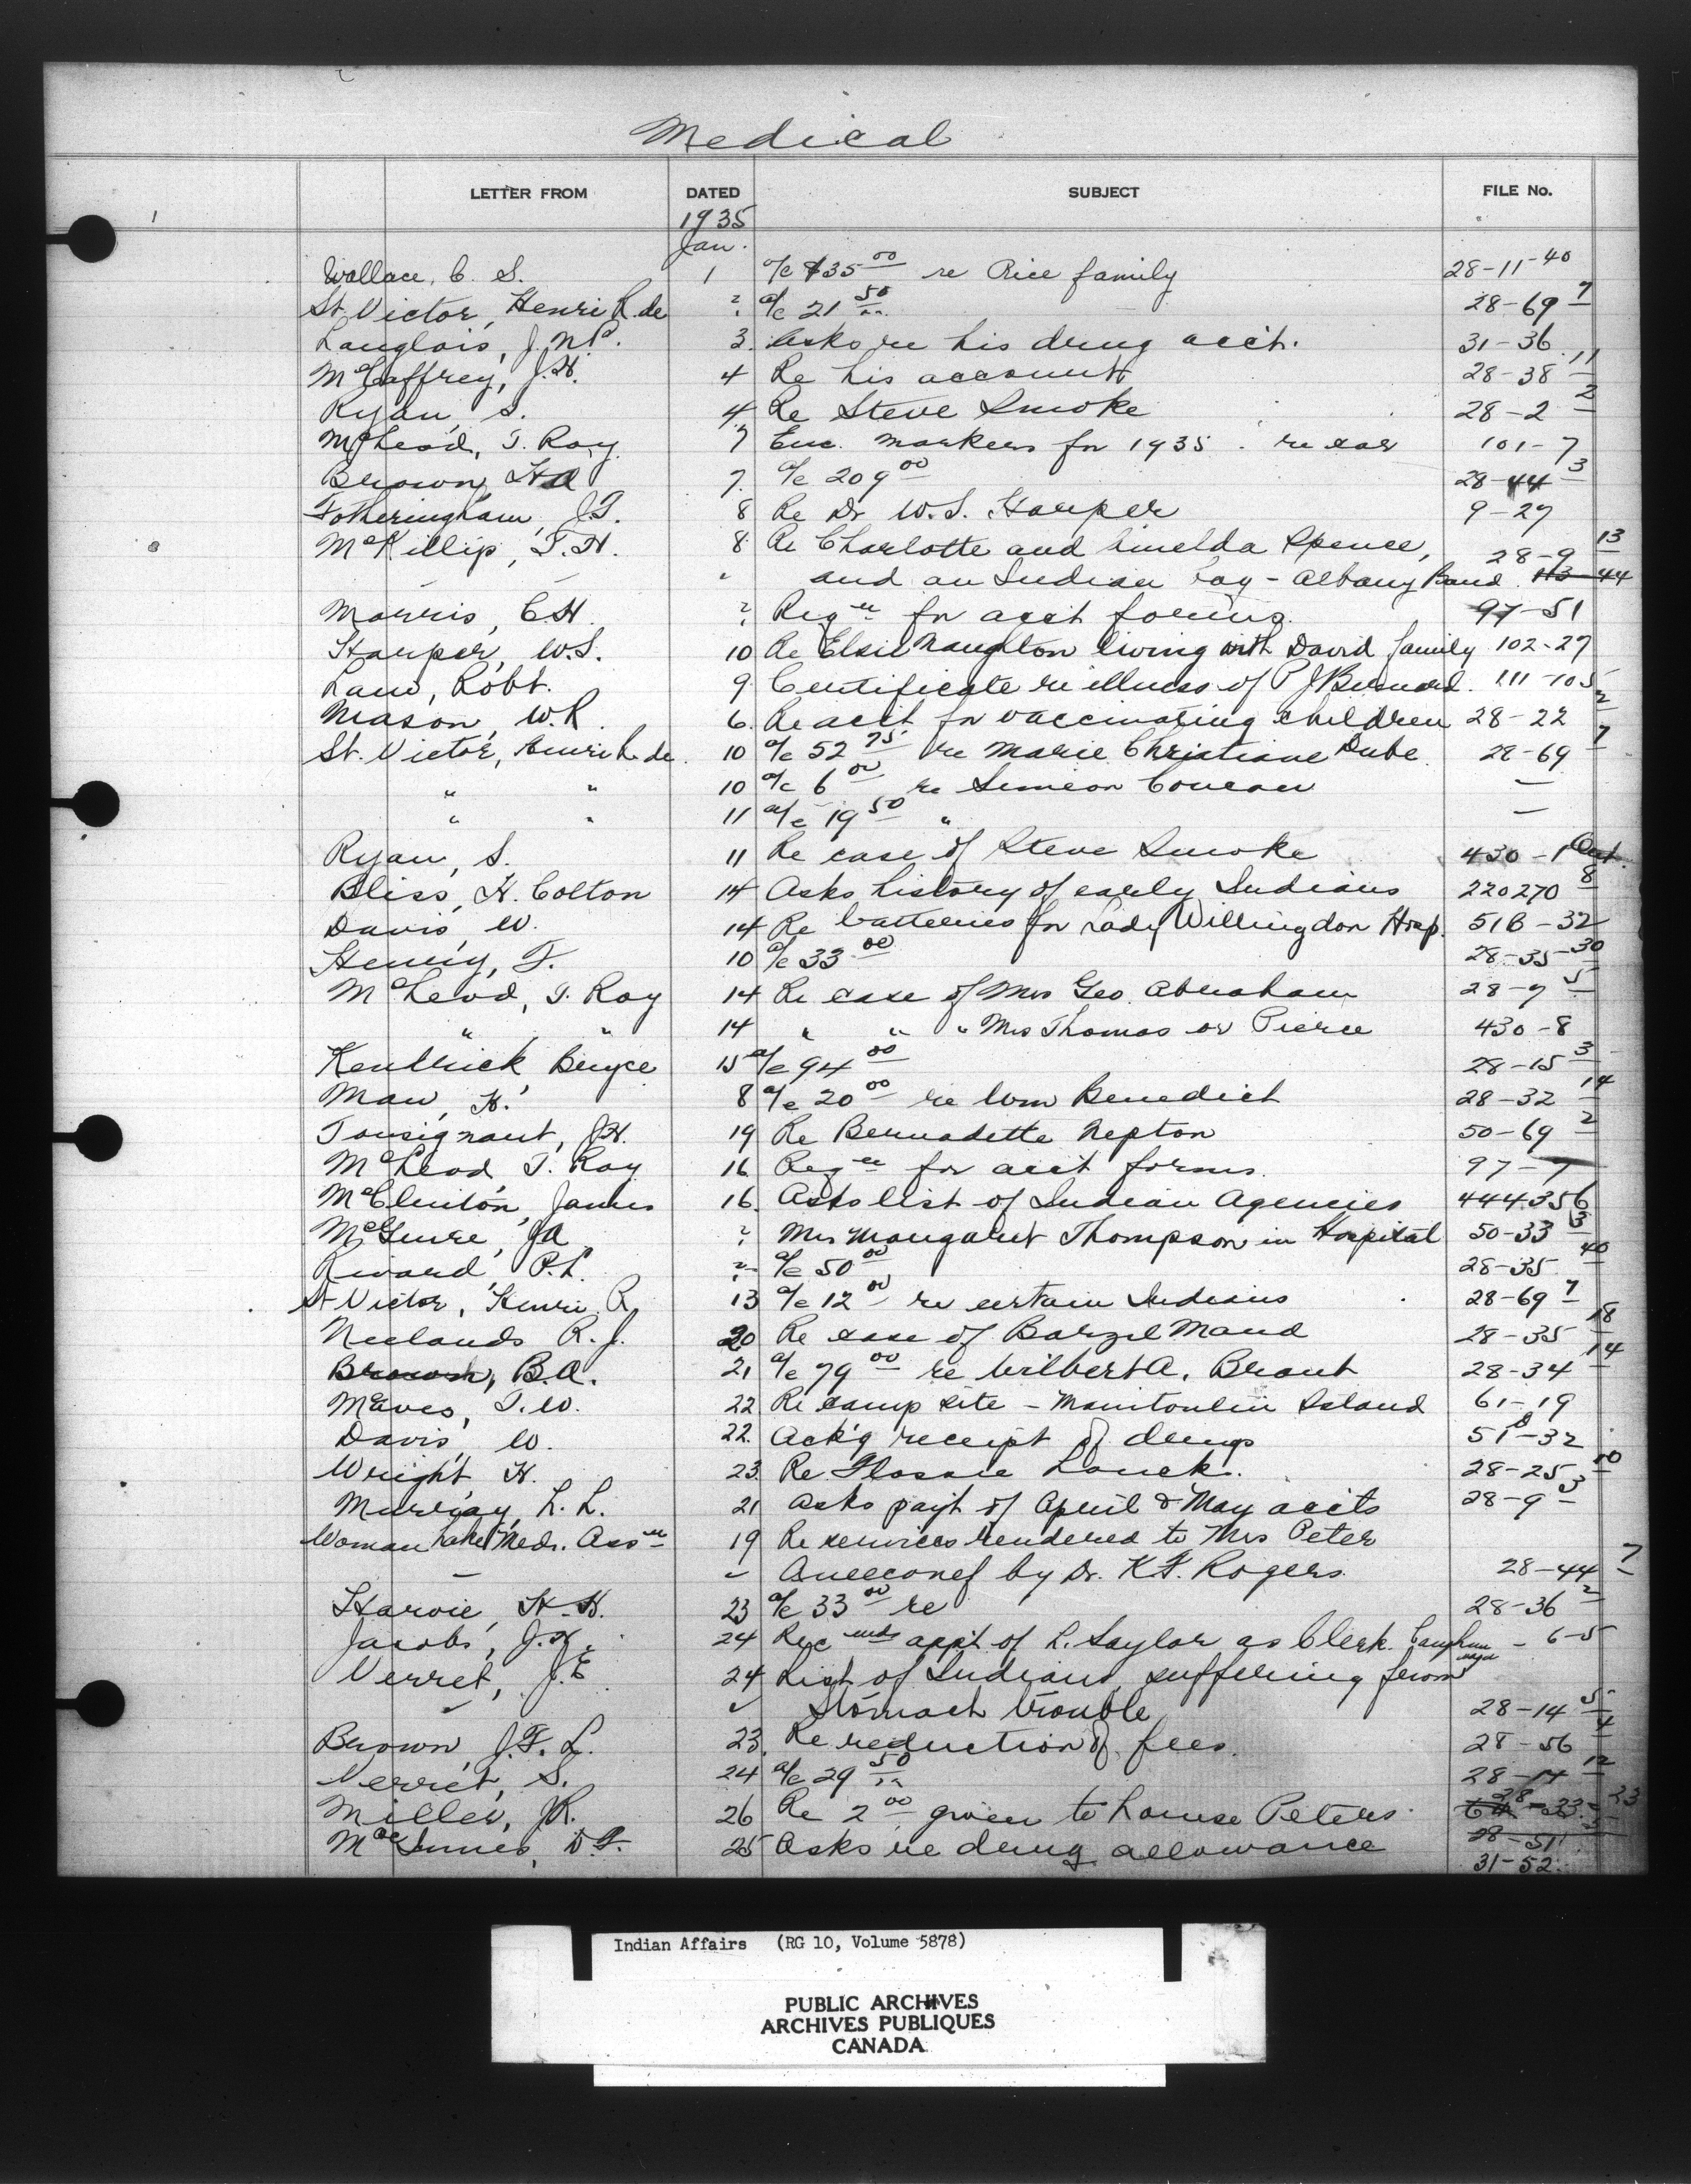 Medical
LETTER FROM DATED SUBJECT FILE No.
1935
Jan.
Wallace, C. S. 1 a/c $35 00 re Rice family 28-11-40
St. Victor, Henri R. de ? a/c 21 50 28-69 7
Langlois, J. N. P. 3 Asks re his drug acct. 31-36
McCaffrey, J. H. 4 Re his account 28-38 11
Ryan, S. 4 Re Steve Smoke 28-2 2
McLeod, T. Roy 7 Enc. markers for 1935 re car 101-7
Brown, H A 7 a/c 209 00 28-44 3
Fotheringham, J. T. 8 Re Dr W. S. Harper 9-27
McKillip, T. H. 8 Re Charlotte and Imelda Spence, 28-9 13
and an Indian boy - Albany Band 113-44
Morris, C. H. ? Reqn for acct forms 97-51
Harper, W. S. 10 Re Elsie Naughton living with David family 102-27
Law, Robt. 9 Certificate re illness of P J Bernard 111-105
Mason, W. R. 6 Re acct for vaccinating children 28-22 2
St. Victor, Henri R. de 10 a/c 52 75 re Marie Christiane Dube 28-69 7
" " 10 a/c 6 00 re Simeon —
" " 11 a/c 19 50 " —
Ryan, S. 11 Re case of Steve Smoke 430-1
Bliss, H. Colton 14 Asks history of early Indians 220270 8
Davis, W. 14 Re batteries for Lady Willingdon Hosp. 51B-32
Henry, F. 10 a/c 33 00 28-35-30
McLeod, T. Roy 14 Re case of Mrs Geo. Abraham 28-7 5
" " 14 " " " Mrs Thomas or Pierce 430-8
Kendrick, Bryce 15 a/c 94 00 28-15 3
Maw, H. 8 a/c 20 00 re Wm Benedict 28-32 14
Tousignant, J. H. 19 Re Bernadette Nepton 50-69 2
McLeod, T. Roy 16 Reqn for acct forms 97-7
McClinton, James 16 Asks list of Indian Agencies 444356
McGuire, J A ? Mrs Margaret Thompson in Hospital 50-33 3
Rivard, P. L. ? a/c 50 00 28-35 40
St Victor, Henri R 13 a/c 12 00 re certain Indians 28-69 7
Neelands R. J. 20 Re case of Barzel Mand 28-35 18
Brown, B. A. 21 a/c 79 00 re Wilbert A. Brant 28-34 14
T. W. 22 Re camp site - Manitoulin Island 61-19
Davis, W. 22 Ack'g receipt of drugs 51B-32
Wright H. 23 Re Flossie Louck. 28-25 10
Murray, L. L. 21 Asks pay't of April & May accts 28-9 3
Woman Lake Med. Assn 19 Re services rendered to Mrs Peter
— by Dr. K F. Rogers 28-44 7
Harvie, H. H. 23 a/c 33 00 re 28-36 2
Jacobs, J. H. 24 Recmds app't of L. Saylor as Clerk. - 6-5
Verret, J. E 24 List of Indians suffering from
Stomach trouble 28-14 5
Brown, J. F. L. 23 Re reduction of fees 28-56 4
Verret, S. 24 a/c 29 50 28-14 12
Miller, J R. 26 Re 2 00 given to Louise Peters 28-33 23
MacInnes, D. F. 25 Asks re drug allowance 28-51
31-52
Indian Affairs (RG 10, Volume 5878)
PUBLIC ARCHIVES
ARCHIVES PUBLIQUES
CANADA